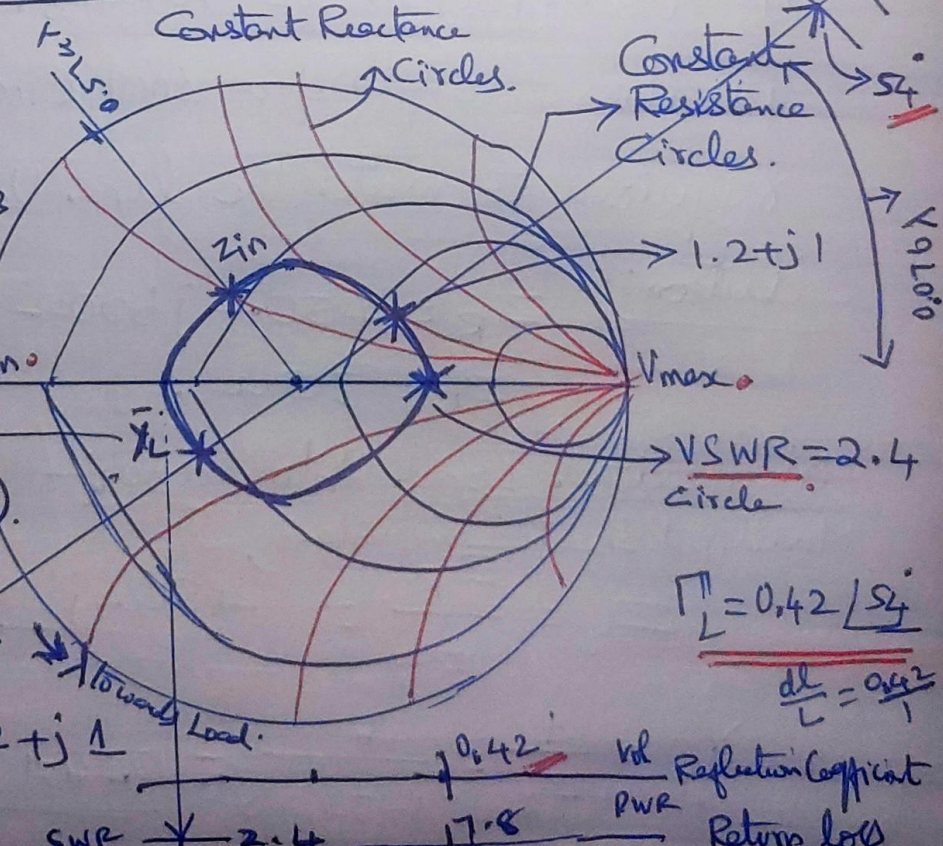 Constant Reactance
Circles.
Constant
Resistance
Circles.
54°
Zin
1.2+j1
Vmax
VSWR = 2.4
Circle
ΓL = 0.42 ∠54°
dl/L = 0.42/1
λ Towards Load.
+j 1
0.42
Vol Reflection Coefficient
PWR
SWR
2.4
7.8
Return loss